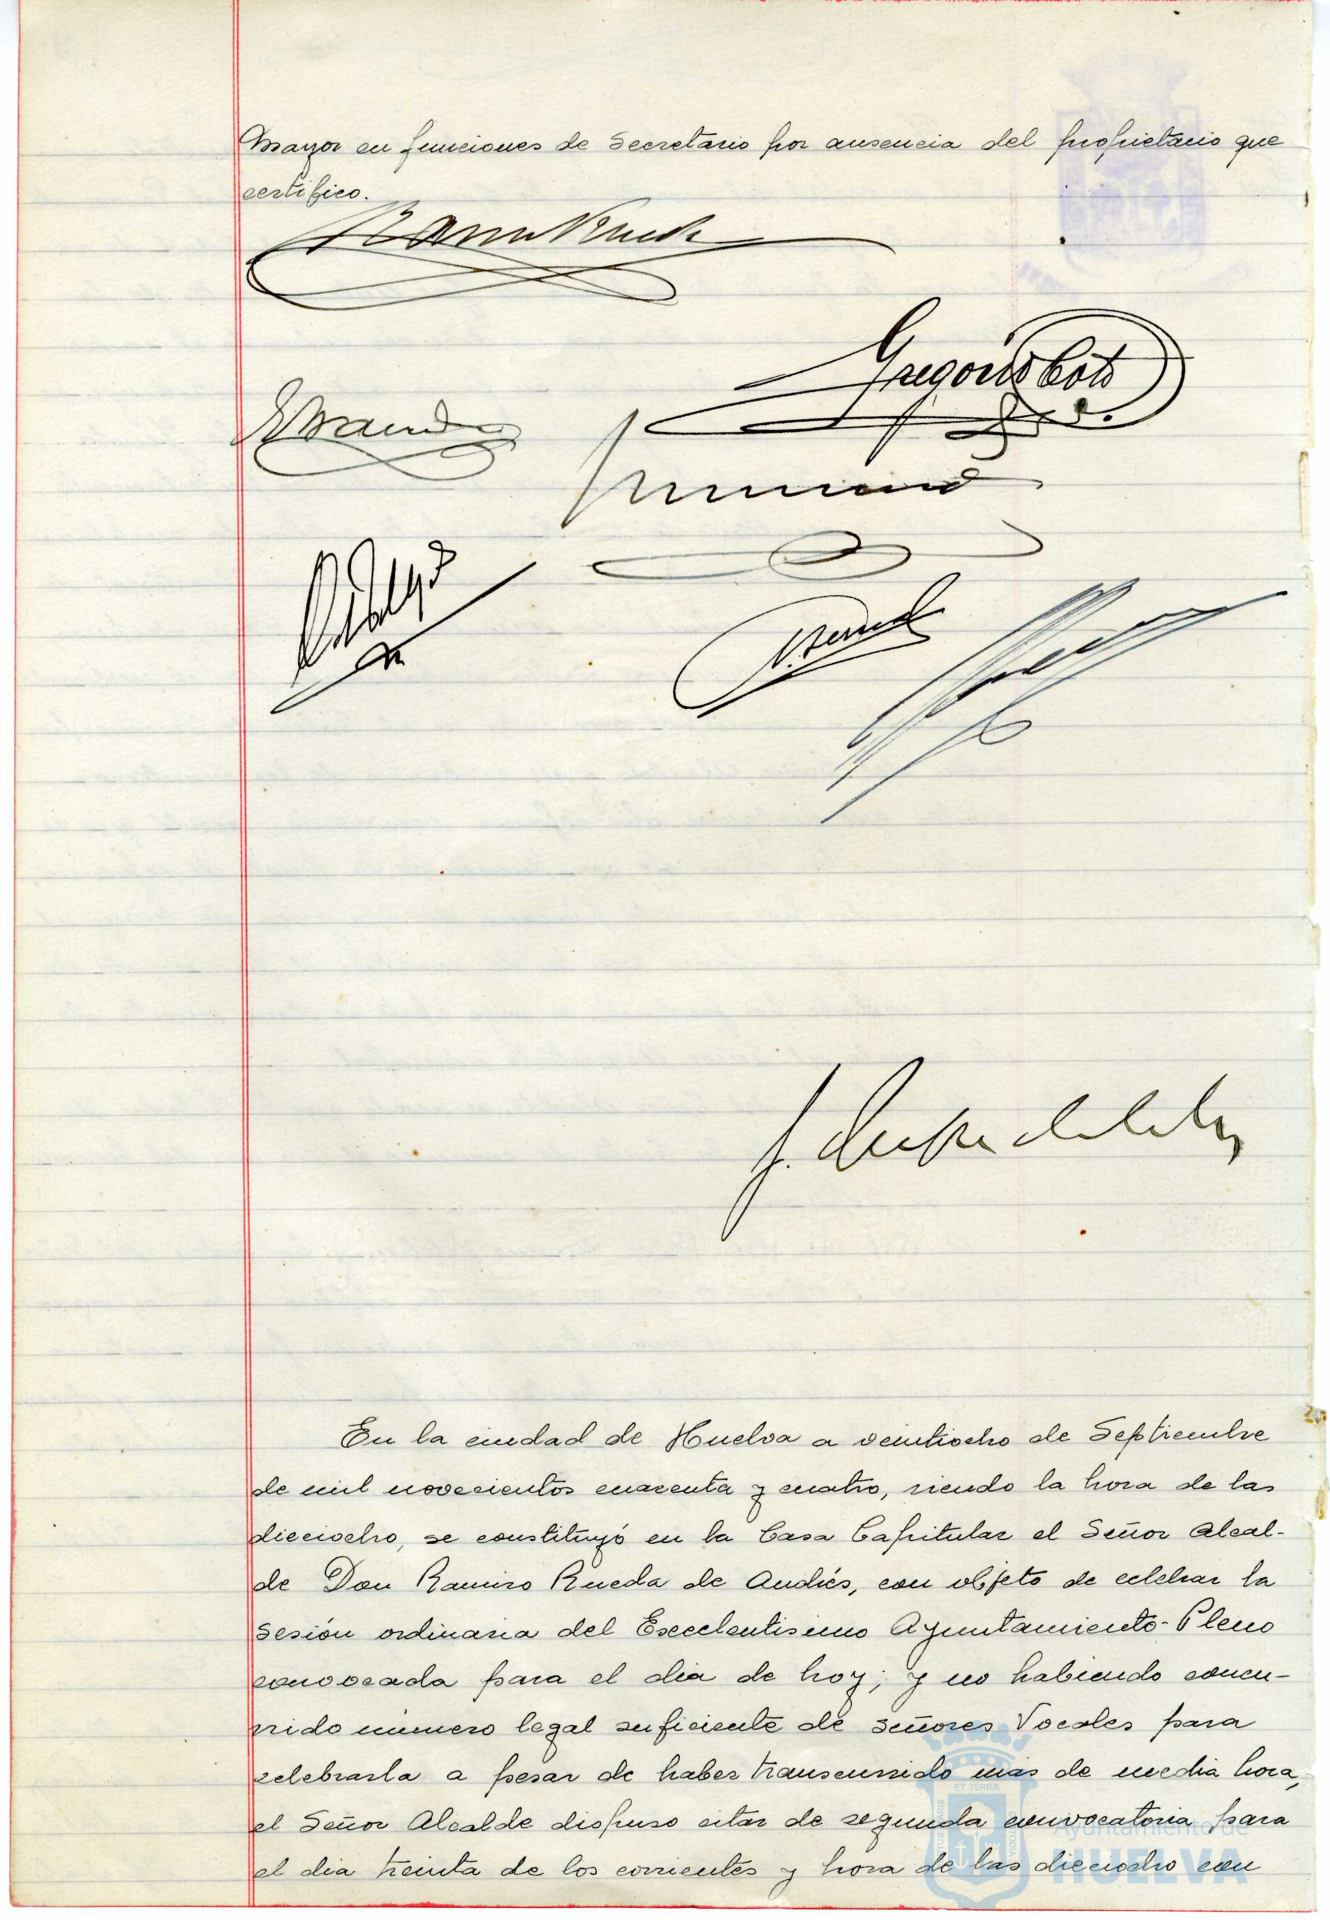 Mayor en funciones de Secretario por ausencia del propietario que
certifico.
Gregorio
Hidalgo
En la ciudad de Huelva a veintiocho de Septiembre
de mil novecientos cuarenta y cuatro, siendo la hora de las
dieciocho, se constituyó en la Casa Capitular el Señor Alcal-
de Don Ramiro Rueda de Andrés, con objeto de celebrar la
sesión ordinaria del Excelentisimo Ayuntamiento-Pleno
convocada para el dia de hoy; y no habiendo concu-
rrido número legal suficiente de señores Vocales para
celebrarla a pesar de haber transcurrido más de media hora,
el Señor Alcalde dispuso citar de segunda convocatoria para
el dia treinta de los corrientes y hora de las dieciocho con
Ayuntamiento de
HUELVA